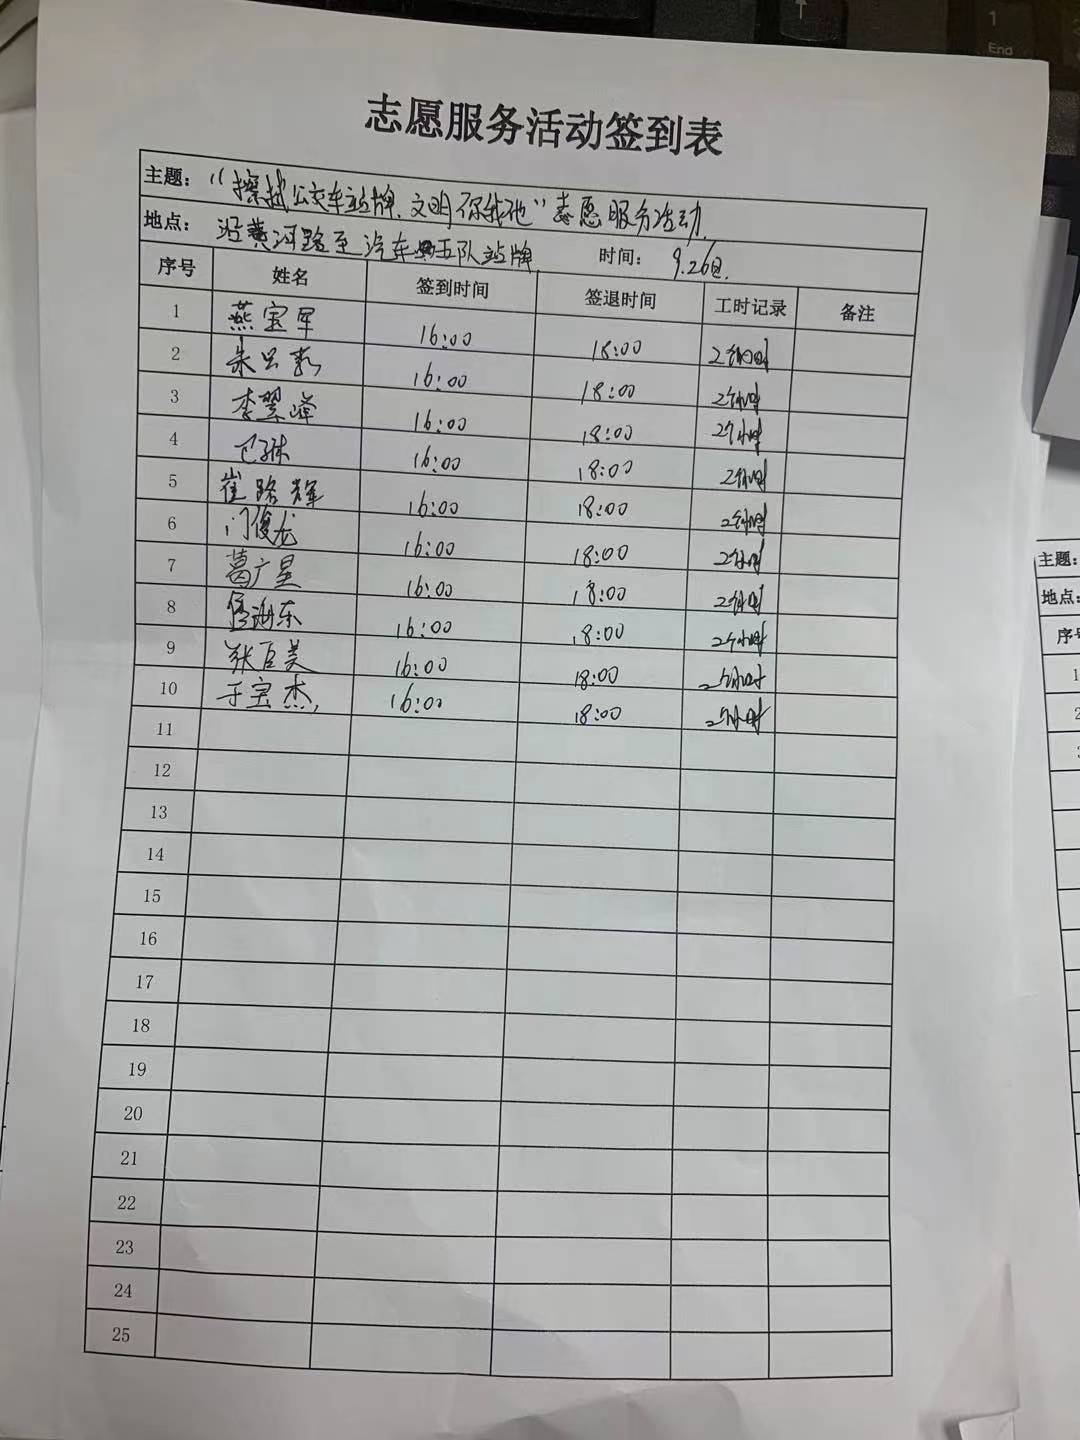 End
志愿服务活动签到表
主题：“擦拭公交车站牌、文明你我他”志愿服务活动.
地点：沿黄河路至汽车五队站牌 时间：9.26日.
序号 姓名 签到时间 签退时间 工时记录 备注
1 燕宝军 16:00 18:00 2个小时
2 朱 16:00 18:00 2个小时
3 李翠峰 16:00 18:00 2个小时
4 16:00 18:00 2个小时
5 崔路辉 16:00 18:00 2个小时
6 门俊龙 16:00 18:00 2个小时
7 葛广星 16:00 18:00 2个小时
8 海东 16:00 18:00 2个小时
9 张巨美 16:00 18:00 2个小时
10 于宝杰, 16:00 18:00 2个小时
11
12
13
14
15
16
17
18
19
20
21
22
23
24
25
主题：
地点：
序号
1
2